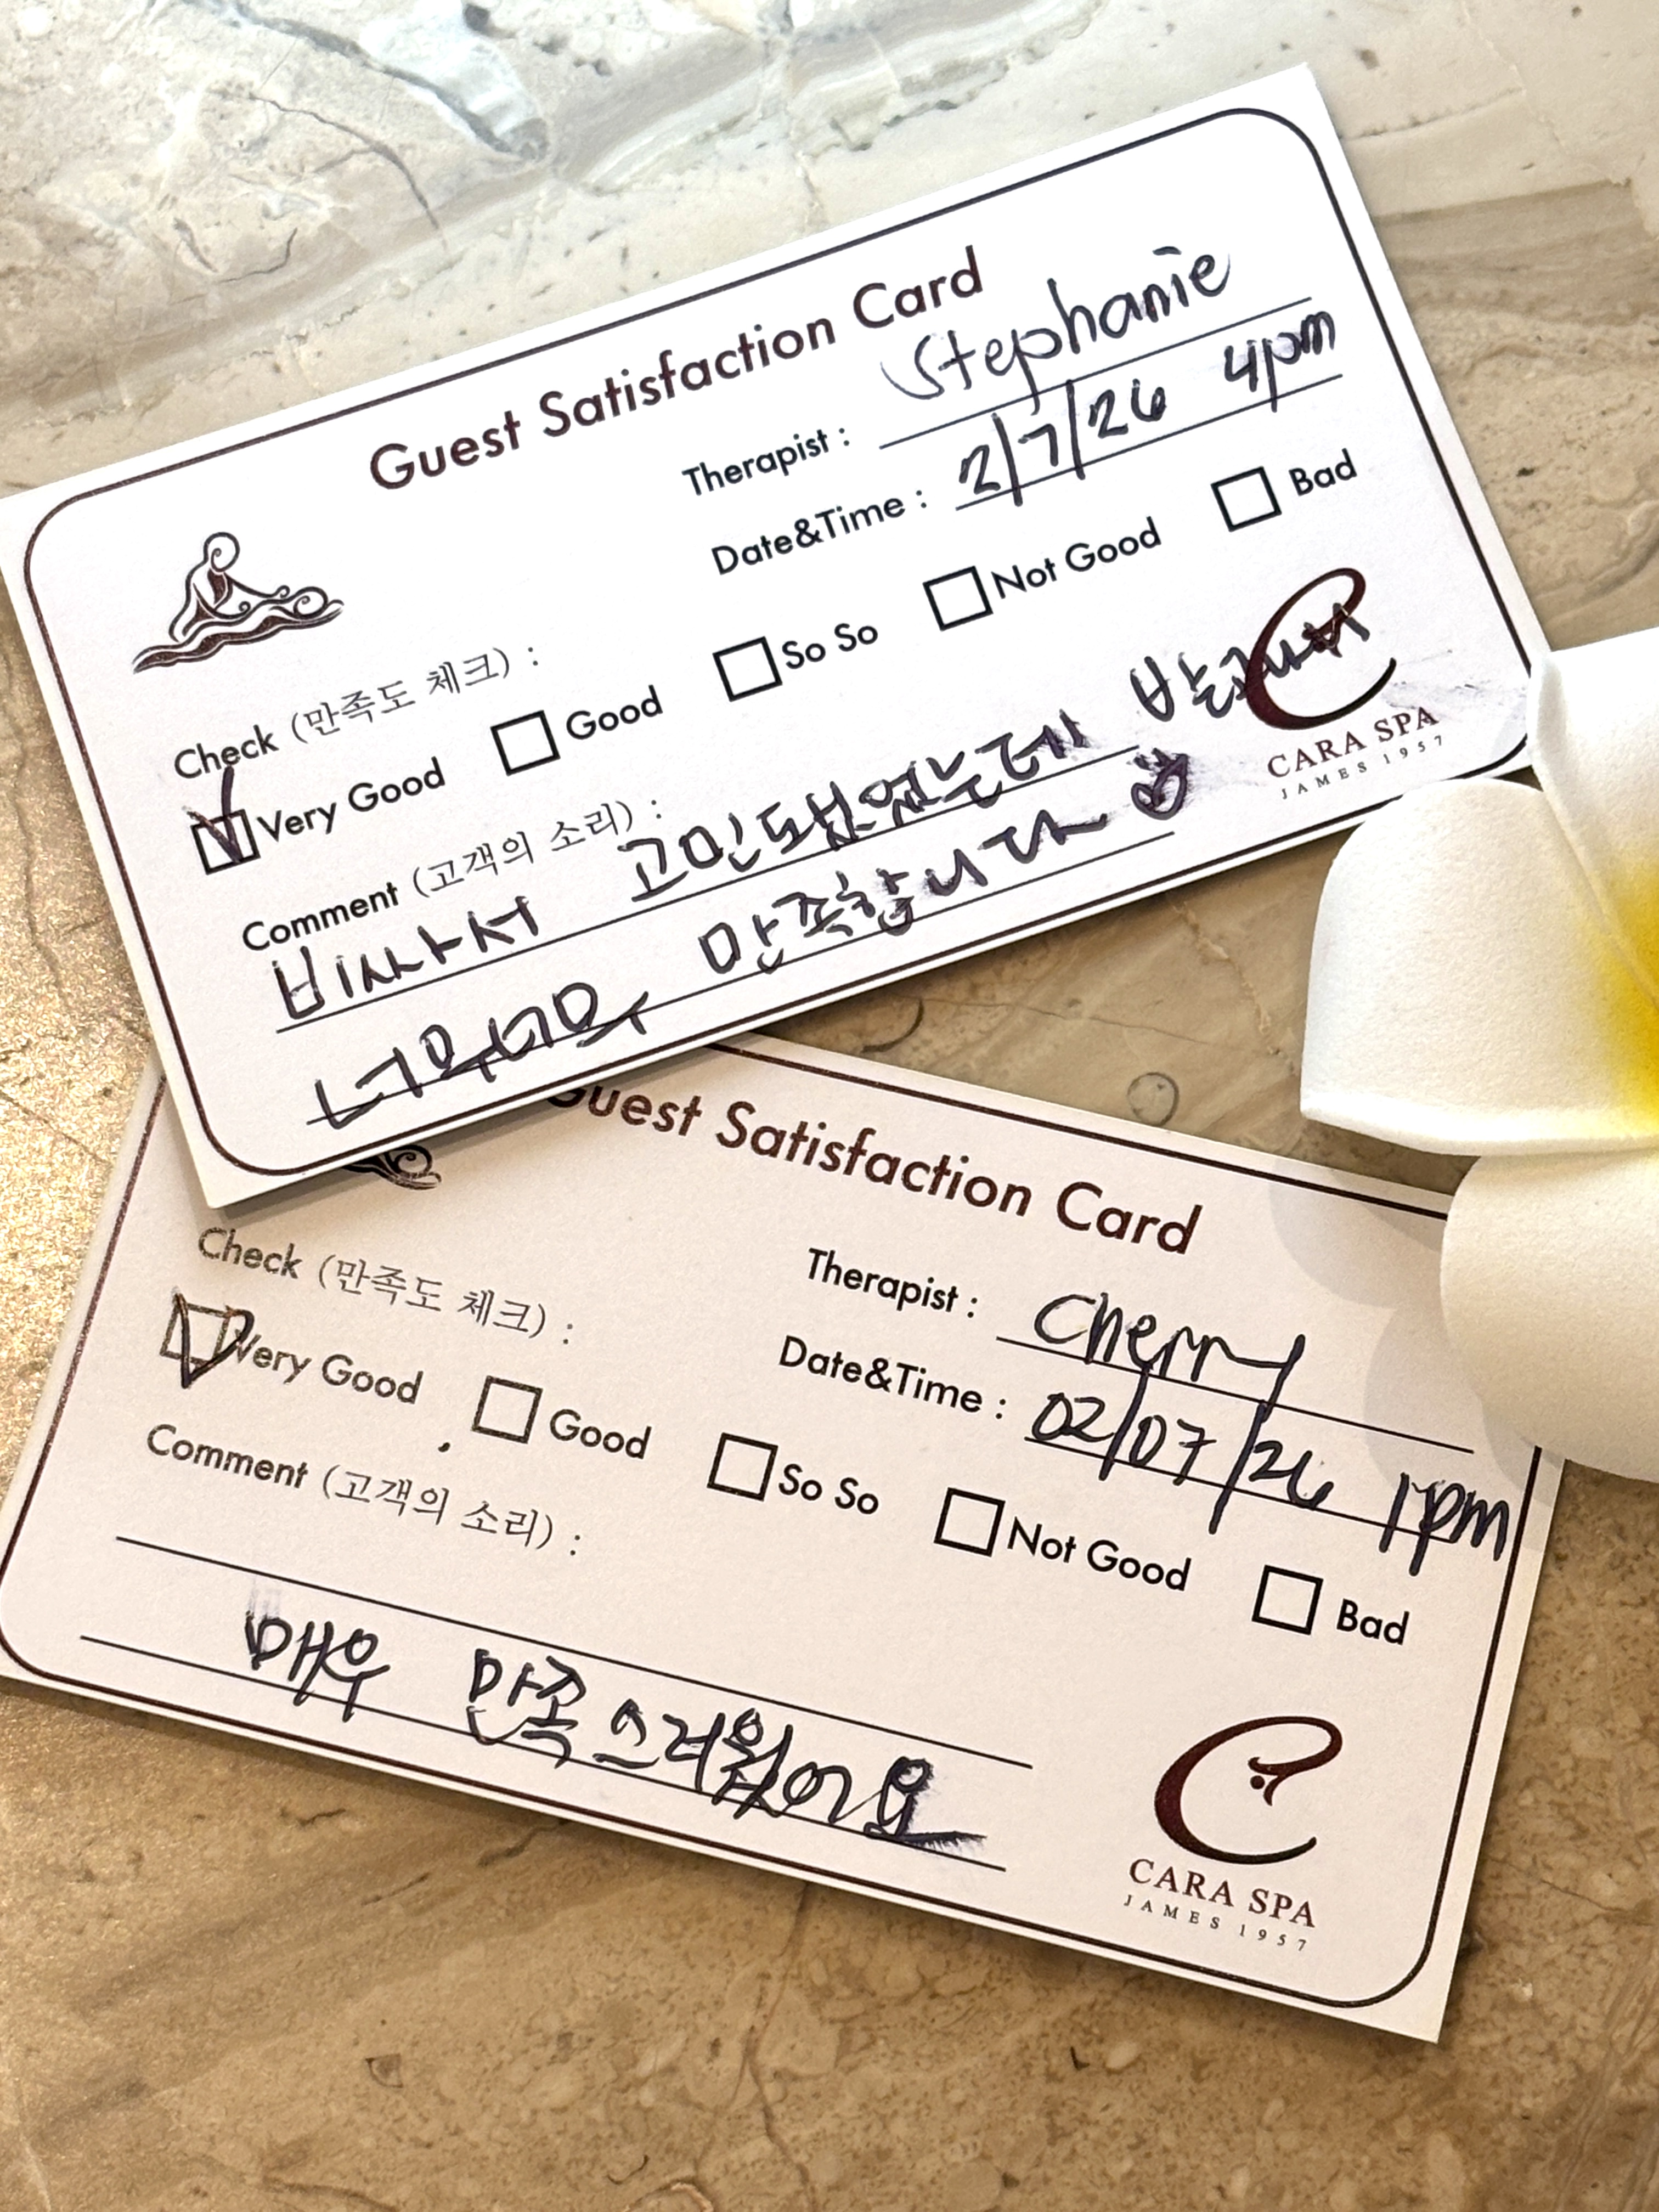 Guest Satisfaction Card
Therapist : Stephanie
Date&Time : 2/7/26 4pm
Check (만족도 체크) :
Very Good Good So So Not Good Bad
Comment (고객의 소리) :
비싸서 고민되었었는데 받고나니
너무너무 만족합니다
CARA SPA
JAMES 1957
Guest Satisfaction Card
Therapist : Cherry
Date&Time : 02/07/26 1pm
Check (만족도 체크) :
Very Good Good So So Not Good Bad
Comment (고객의 소리) :
매우 만족스러웠어요
CARA SPA
JAMES 1957